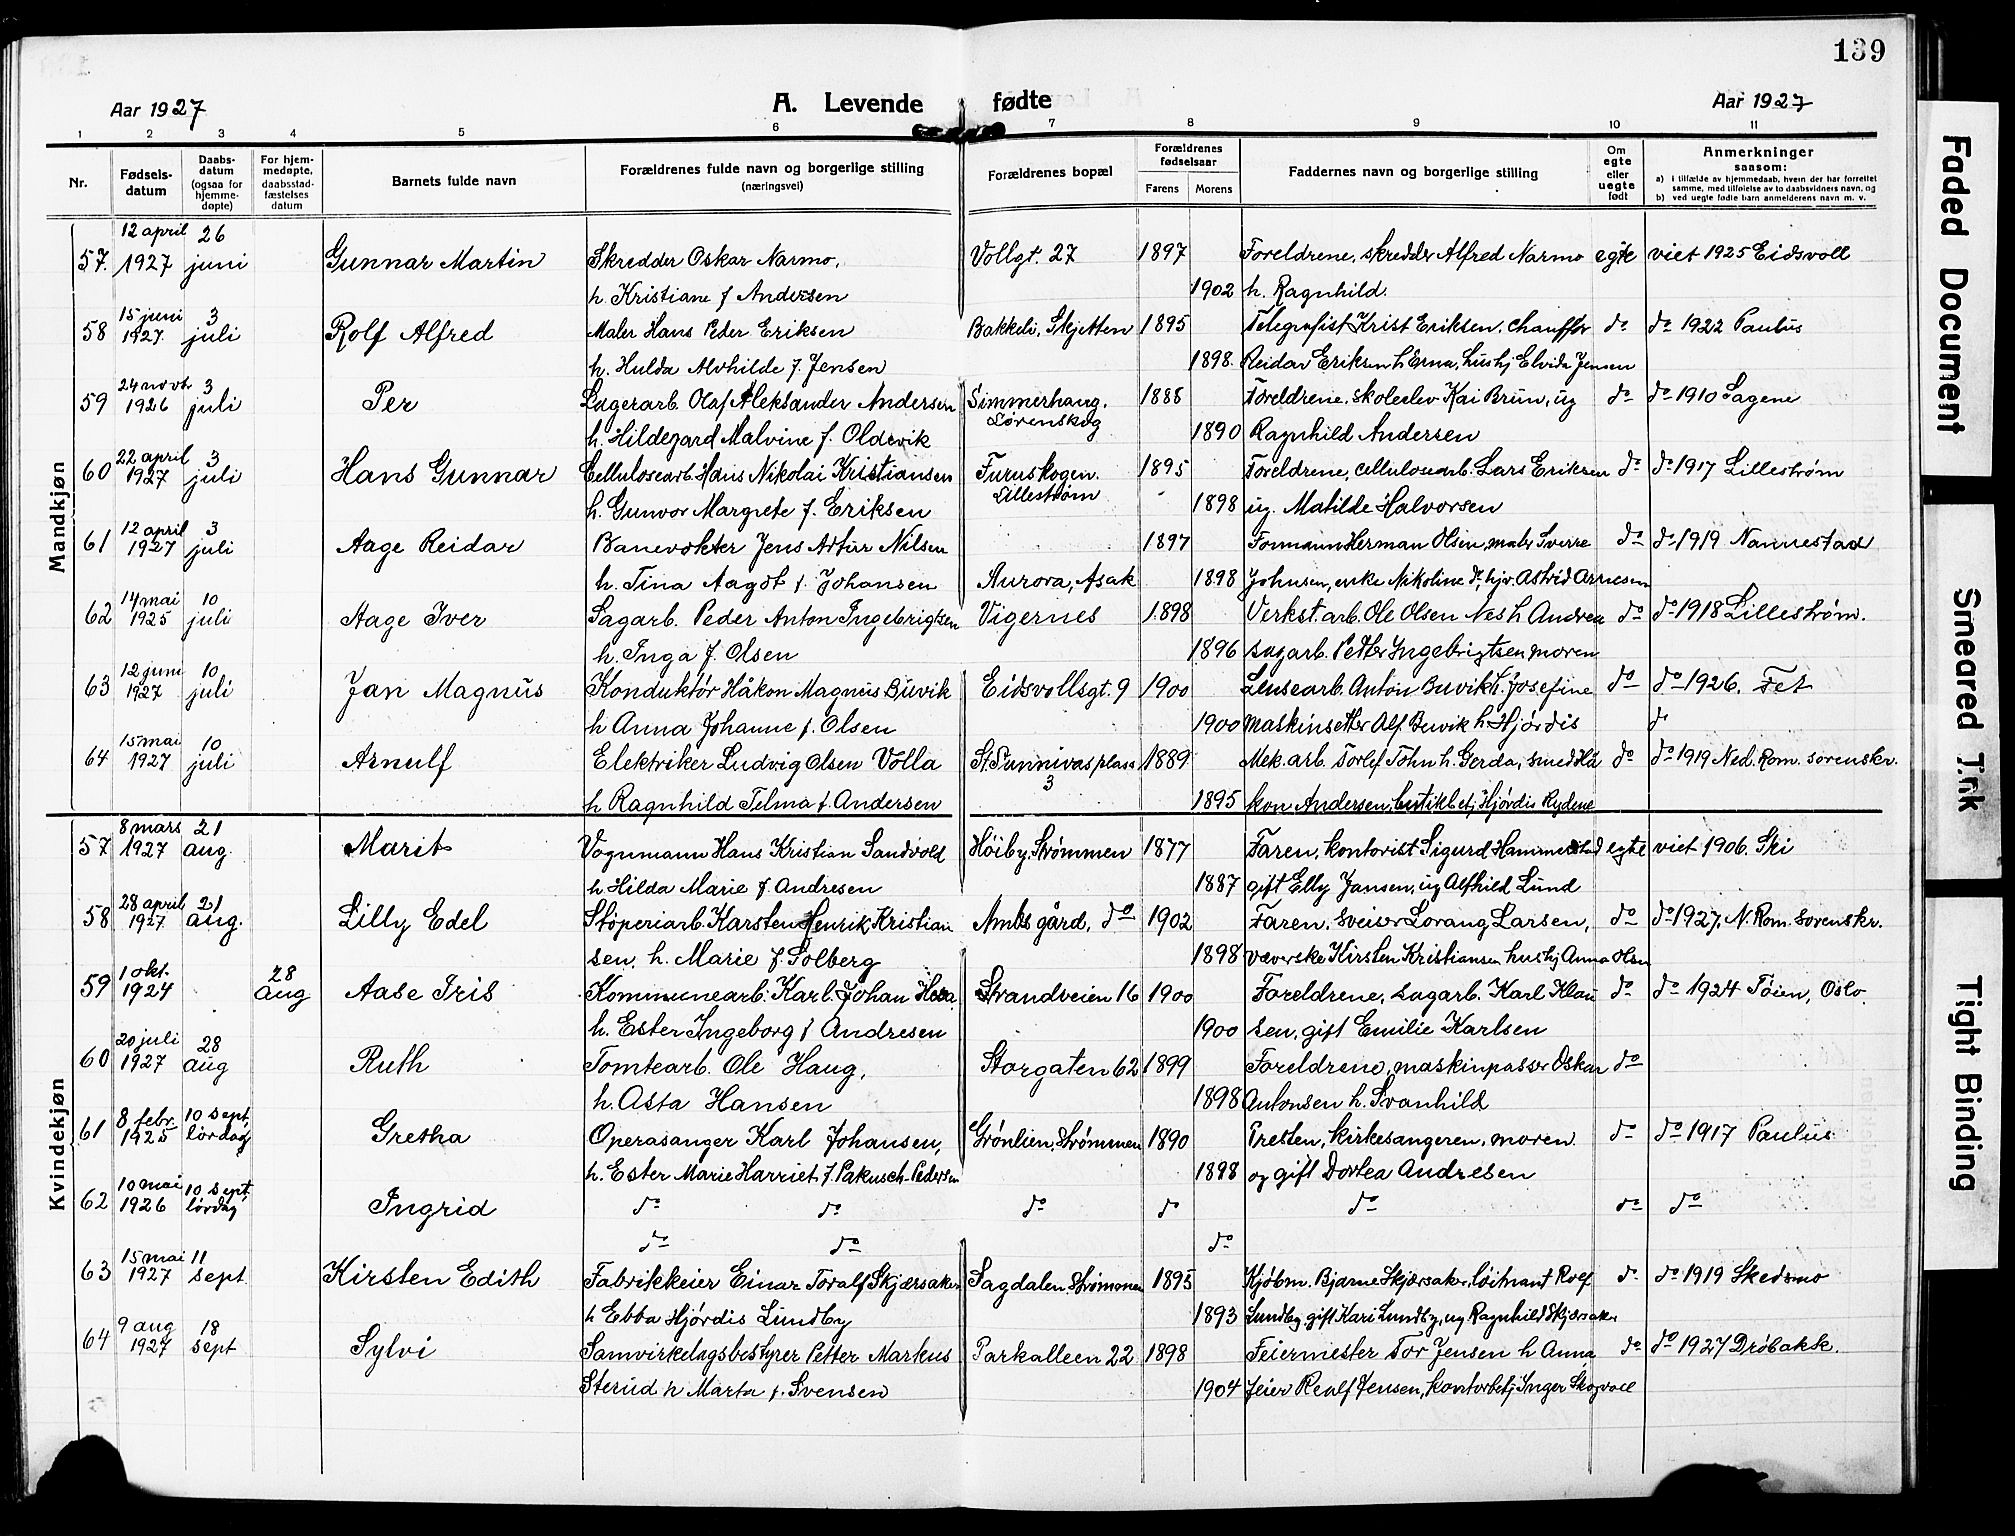 139
Aar 1927 A. Levende fødte Aar 1927
1 2 3 4 5 6 7 8 9 10 11
Nr. Fødsels-datum Daabs-datum (ogsaa for hjemme-døpte) For hjem-medøpte, daabsstad-fæstelses datum Barnets fulde navn Forældrenes fulde navn og borgerlige stilling (næringsvei) Forældrenes bopæl Forældrenes fødselsaar Farens Morens Faddernes navn og borgerlige stilling Om egte eller uegte født Anmerkninger saasom: a) i tilfælde av hjemmedaab, hvem der har forrettet samme, med tilføielse av to daabsvidners navn, og b) ved uegte fødte barn anmelderens navn m. v.
Mandkjøn
57. 12 april 1927 26 juni Gunnar Martin Skredder Oskar Narmo, Vollgt. 27 1897 Foreldrene, skredder Alfred Narmo egte viet 1925 Eidsvoll
h. Kristiane f Andersen 1902 h. Ragnhild.
58 15 juni 1927. 3 juli Rolf Alfred Maler Hans Peder Eriksen Bakkeli, Skjetten 1895 Telegrafist Krist Eriksen, chauffør do do 1922 Paulus
h. Hulda Alvhilde f. Jensen 1898. Reidar Eriksen h Erna, hushj Elvida Jensen
59 24 novbr 1926 3 juli Per Lagerarb. Olaf Aleksander Andersen Simmerhaug, Lørenskog 1888 Foreldrene, skoleelev Kai Brun, ug do do 1910 Sagene
h. Hildegard Malvine f. Oldervik 1890 Ragnhild Andersen
60 22 april 1927 3 juli Hans Gunnar Cellulosearb. Hans Nikolai Kristiansen Furuskogen. Lillestrøm 1895 Foreldrene, cellulosearb. Lars Eriksen do do 1917 Lillestrøm
h. Gunvor Margrete f. Eriksen 1898 ug. Matilde Halvorsen
61 12 april 1927 3 juli Aage Reidar Banevokter Jens Artur Nilsen 1897 Formann Herman Olsen, maler Sverre do do 1919 Nannestad
h. Tina Aagot f. Johansen Aurora, Asak 1898 Johnsen, enke Nikoline do, hjv. Astrid Arnesen
62 14 mai 1925 10 juli Aage Iver Sagarb. Peder Anton Ingebrigtsen Vigernes 1898 Verkst. arb. Ole Olsen Nes h Andrea do do 1918 Lillestrøm.
h. Inga f. Olsen 1896 sagarb. Petter Ingebrigtsen, moren
63 12 juni 1927 10 juli Jan Magnus Konduktør Håkon Magnus Buvik Eidsvollsgt. 9 1900 Lensearb. Anton Buvik h. Josefine do do 1926. Fet
h Anna Johanne f. Olsen 1900 maskinsetter Alf Buvik h. Hjørdis do
64 15 mai 1927 10 juli Arnulf Elektriker Ludvig Olsen Volla St. Sunnivas plass 3 1889 Mek. arb. Torlef Tohn h. Gerda, smed Hå do do 1919 Ned. Rom. sorenskr.
h Ragnhild Telma f. Andersen 1895 kon Andersen, butikkbetj Hjørdis Rydene
Kvindekjøn
57 8 mars 1927 21 aug. Marit Vognmann Hans Kristian Sandvold Høiby, Strømmen 1877 Faren, kontorist Sigurd Hammerstad egte viet 1906. Ski
h Hilda Marie f. Andresen 1887 gift Elly Jansen, ug Alfhild Lund
58 28 april 1927 21 aug. Lilly Edel Støperiarb. Karsten Henrik Kristian Ambs gård, do 1902 Faren, sveiser Lorang Larsen, do do 1927, N. Rom. sorenskr.
sen, h. Marie f. Solberg 1898 væverske Kirsten Kristiansen hushj Anna Olsen
59 1 okt. 1924 28 aug Aase Iris Kommunearb. Karl Johan Strandveien 16 1900 Foreldrene, sagarb. Karl Klau do do 1924 Tøien, Oslo.
h. Ester Ingeborg f Andresen 1900 sen, gift Emilie Karlsen
60 20 juli 1927 28 aug Ruth Tomtearb. Ole Haug, Storgaten 62 1899 Foreldrene, maskinpasser Oskar do
h. Asta Hansen 1898 Antonsen h. Svanhild
61 8 febr. 1925 10 sept, lørdag Gretha Operasanger Karl Johansen, Grønlien, Strømmen 1890 Presten, kirkesangeren, moren do do 1917 Paulus
h. Ester Marie Harriet f. Pakusch-Pedersen 1898 og gift Dortea Andresen
62 10 mai 1926 10 sept, lørdag Ingrid do do do do do do do
do do do
63 15 mai 1927 11 sept Kirsten Edith Fabrikkeier Einar Toralf Skjærsaker Sagdalen, Strømmen 1895 Kjøbm. Bjarne Skjærsaker, løitnant Rolf do do 1919 Skedsmo
h Ebba Hjørdis Lundby 1893 Lundby, gift Kari Lundby, ug Ragnhild Skjærsaker
64 9 aug 1927 18 sept Sylvi Samvirkelagsbestyrer Petter Markus Parkalleen 22 1898 Feiermester Tor Jensen h Anna, do do 1927 Drøbakk.
Sterud h Marta f. Svensen 1904 feier Realf Jensen, kontorbetj Inger Skogvoll
Faded Document
Smeared Ink
Tight Binding